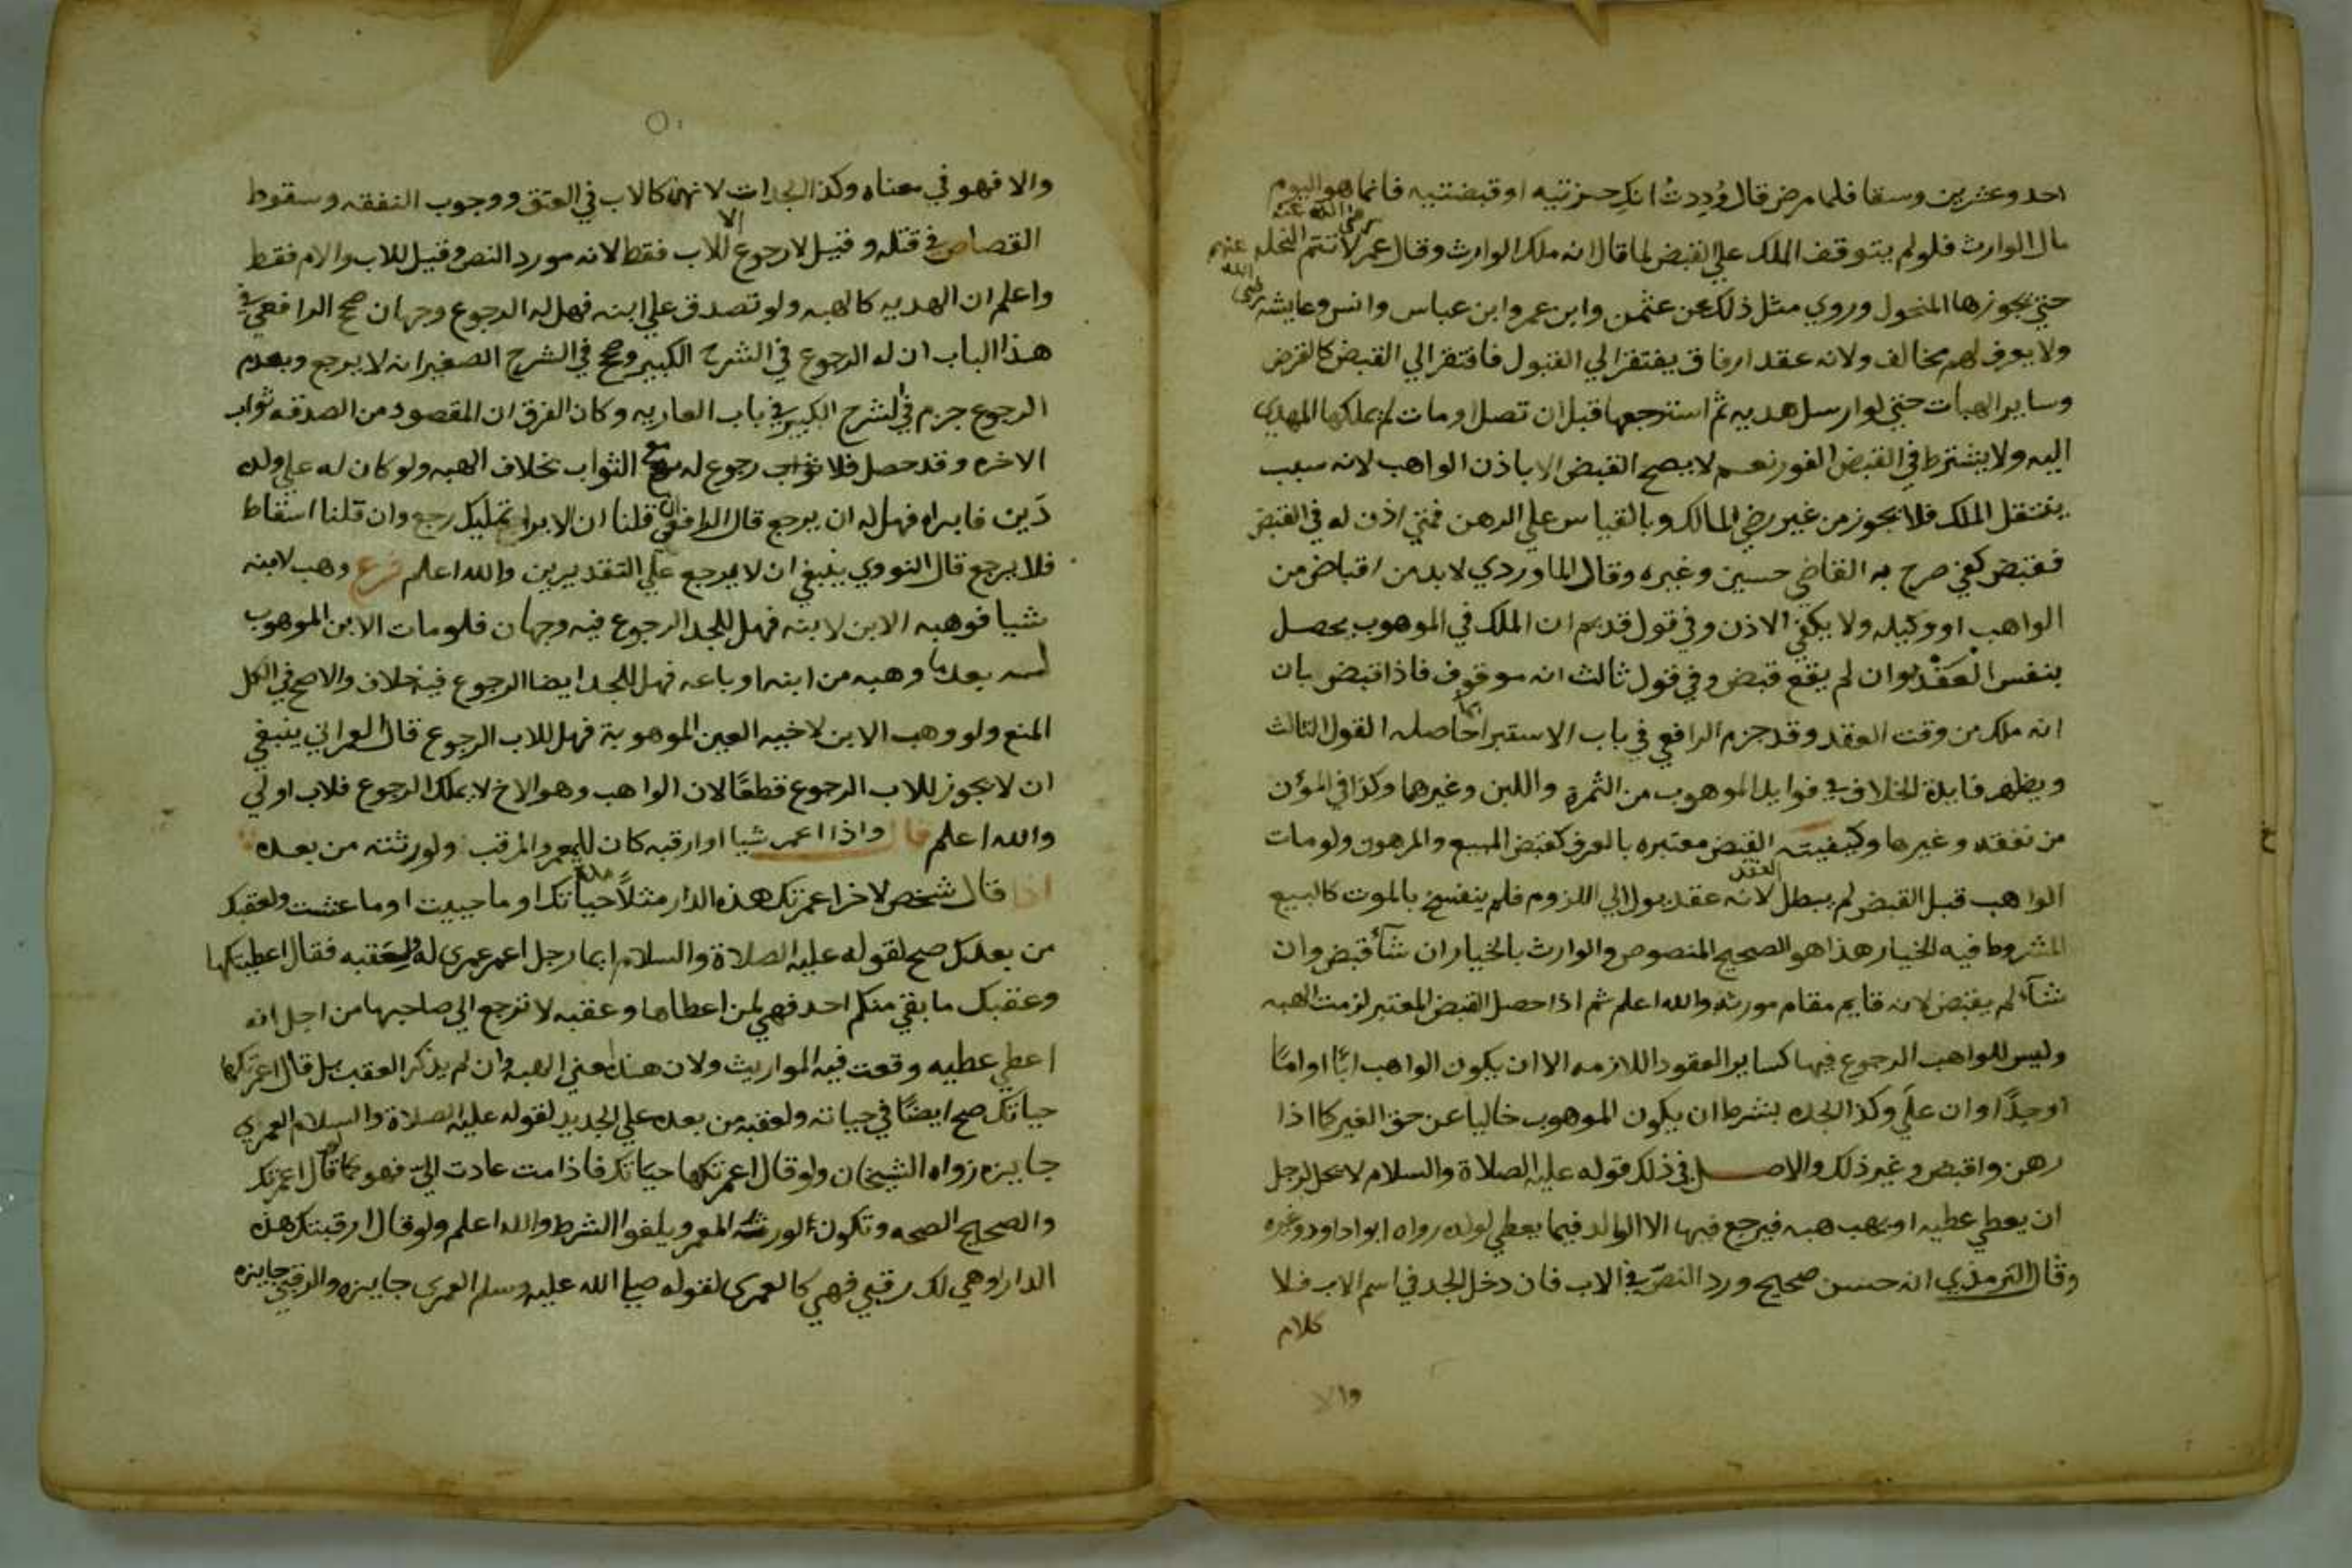 احد وعشرين وسقا فلما مرض قال وُدِدتُ انكِ حزتيه او قبضتيه فانما هو اليوم
مال الوارث فلو لم يتوقف الملك علي القبض لما قال انه ملك الوارث وقال عمر رضي الله عنه لا تتم النحله
حتي يحوزها المنحول وروي مثل ذلك عن عثمن وابن عمر وابن عباس وانس وعايشه رضي الله عنهم
ولا يعرف لهم مخالف ولانه عقد ارفاق يفتقر الي القبول فافتقر الي القبض كالقرض
وساير الهبات حتي لو ارسل هديه ثم استرجعها قبل ان تصل او مات لم يملكها المهدي
اليه ولا يشترط في القبض الفور نعم لا يصح القبض الا باذن الواهب لانه سبب
ينتقل الملك فلا يجوز من غير رضي المالك وبالقياس علي الرهن فمتي اذن له في القبض
فقبض كفي صرح به القاضي حسين وغيره وقال الماوردي لا بد من اقباض من
الواهب او وكيله ولا يكفي الاذن وفي قول قديم ان الملك في الموهوب يحصل
بنفس العَقْد وان لم يقع قبض وفي قول ثالث انه موقوف فاذا قبض بان
انه ملك من وقت العقد وقد جزم الرافعي في باب الاستبرا بما حاصله القول الثالث
ويظهر فايدة الخلاف في فوايد الموهوب من الثمرة واللبن وغيرهما وكذا في المؤن
من نفقه وغيرها وكيفيته القبض معتبره بالعرف كقبض المبيع والمرهون ولو مات
الواهب قبل القبض لم يبطل العقد لانه عقد يول الي اللزوم فلم ينفسخ بالموت كالبيع
المشروط فيه الخيار هذا هو الصحيح المنصوص والوارث بالخيار ان شآ قبض وان
شآ لم يقبض لانه قايم مقام مورثه والله اعلم ثم اذا حصل القبض المعتبر لزمت الهبه
وليس للواهب الرجوع فيها كساير العقود اللازمه الا ان يكون الواهب ابًا او امًا
او جدًا وان علي وكذا الجده بشرط ان يكون الموهوب خاليا عن حق الغير كما اذا
رهن واقبض وغير ذلك والاصل في ذلك قوله عليه الصلاة والسلام لا يحل لرجل
ان يعطي عطيه او يهب هبه فيرجع فيها الا الوالد فيما يعطي لولده رواه ابوا داود وغيره
وقال الترمذي انه حسن صحيح ورد النص في الاب فان دخل الجد في اسم الاب فلا
كلام
والا
والا فهو في معناه وكذا الجدات لانهن كالاب في العتق ووجوب النفقه وسقوط
القصاص في قتله وقيل لا رجوع الا للاب فقط لانه مورد النص وقيل للاب والام فقط
واعلم ان الهديه كالهبه ولو تصدق علي ابنه فهل له الرجوع وجهان صحح الرافعي في
هذا الباب ان له الرجوع في الشرح الكبير وصحح في الشرح الصغير انه لا يرجع وبعدم
الرجوع جزم في الشرح الكبير في باب العاريه وكان الفرق ان المقصود من الصدقه ثواب
الاخره وقد حصل فلا رجوع له مع الثواب بخلاف الهبه ولو كان له علي ولده
دَين فابراه فهل له ان يرجع قال الرافعي ان قلنا ان الابرا تمليك رجع وان قلنا اسقاط
فلا يرجع قال النووي ينبغي ان لا يرجع علي التقديرين والله اعلم فرع وهب لابنه
شيا فوهبه الابن لابنه فهل للجد الرجوع فيه وجهان فلو مات الابن الموهوب
له بعدما وهبه من ابنه او باعه فهل للجد ايضا الرجوع فيه خلاف والاصح في الكل
المنع ولو وهب الابن لاخيه العين الموهوبة فهل للاب الرجوع قال العمراني ينبغي
ان لا يجوز للاب الرجوع قطعًا لان الواهب وهو الاخ لا يملك الرجوع فلاب اولي
والله اعلم قال واذا اعمر شيا او ارقبه كان للمعمر والمرقب ولورثته من بعده
اذا قال شخص لاخر اعمرتك هذه الدار مثلًا حياتك او ما حييت او ما عشت ولعقبك
من بعدك صح لقوله عليه الصلاة والسلام ايما رجل اعمر عمري له ولعَقبه فقال اعطيتكها
وعقبك ما بقي منكم احد فهي لمن اعطاها وعقبه لا ترجع الي صاحبها من اجل انه
اعطي عطيه وقعت فيه المواريث ولان هذا معني الهبه وان لم يذكر العقب بل قال اعمرتكها
حياتك صح ايضًا في حياته ولعقبه من بعده علي الجديد لقوله عليه الصلاة والسلام العمري
جايزه رواه الشيخان ولو قال اعمرتكها حياتك فاذا مت عادت اليّ فهو كما لو قال اعمرتك
والصحيح الصحه وتكون لورثة المعمر ويلغوا الشرط والله اعلم ولو قال ارقبتك هذه
الدار او هي لك رقبي فهي كالعمري لقوله صلي الله عليه وسلم العمري جايزه والرقبي جايزه